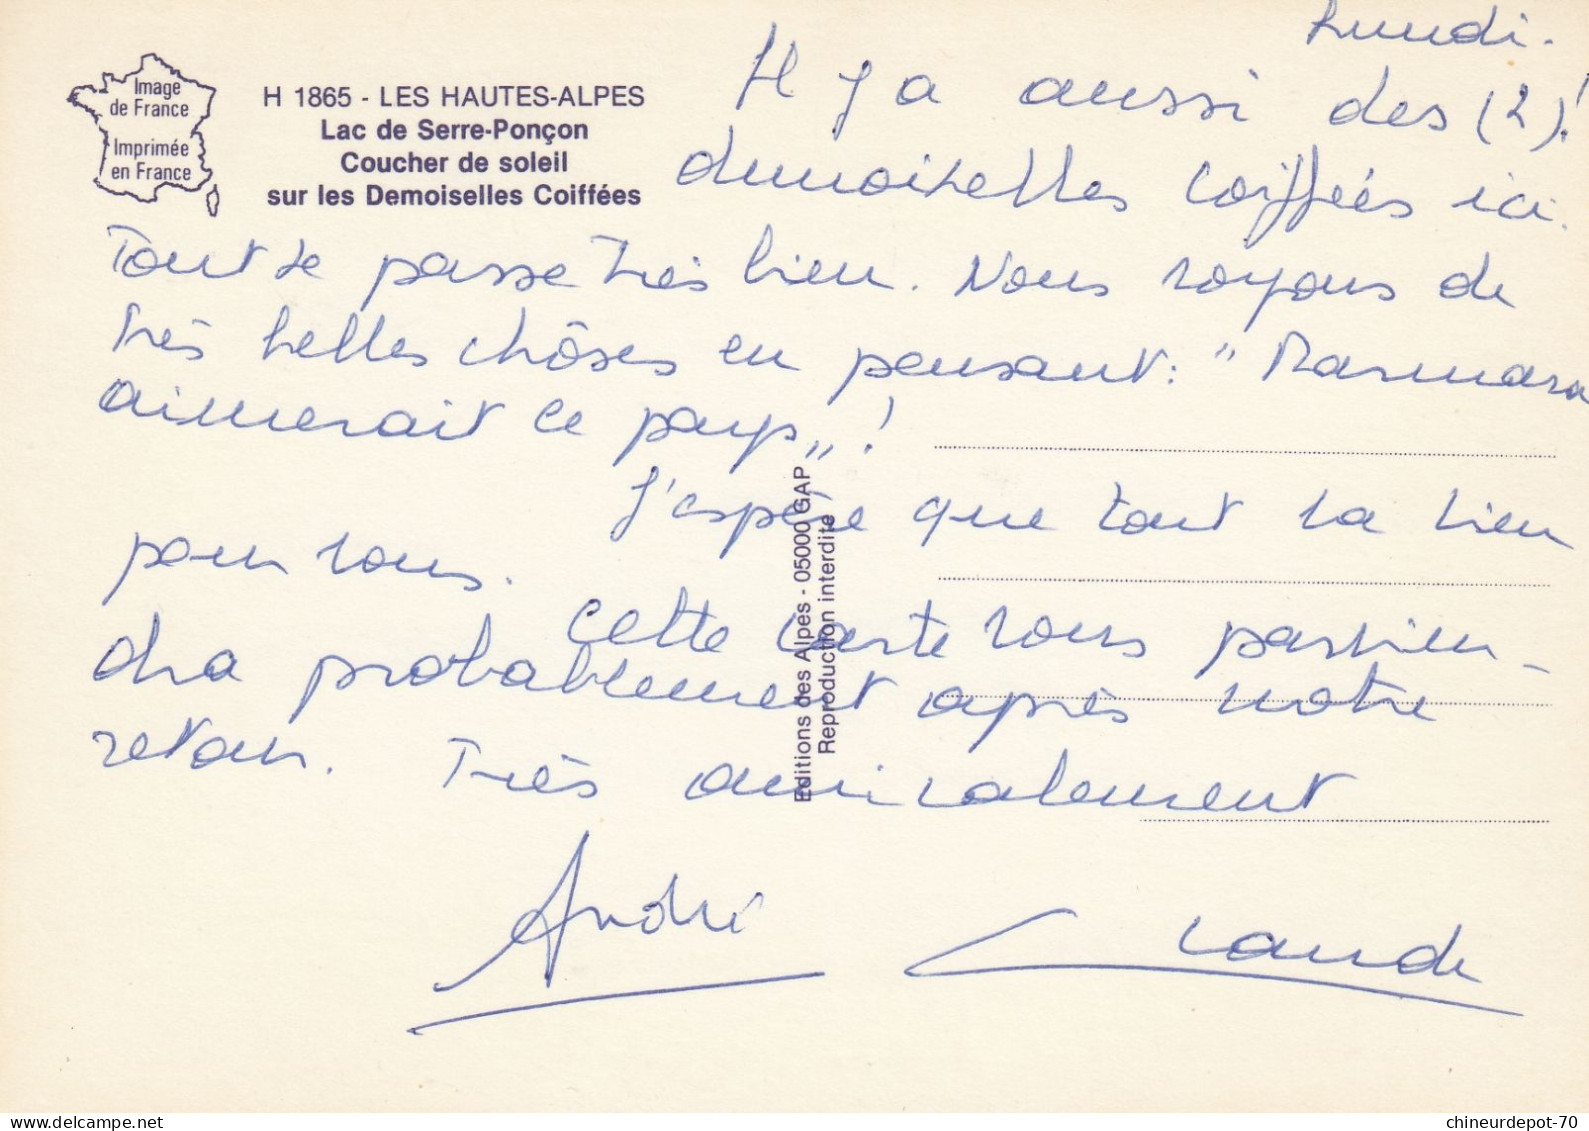 Image
de France
Imprimée
en France
H 1865 - LES HAUTES-ALPES
Lac de Serre-Ponçon
Coucher de soleil
sur les Demoiselles Coiffées
Lundi.
Il y a aussi des (2)!
demoiselles coiffées ici.
Tout se passe très bien. Nous voyons de
très belles chôses en pensant: "Marmara
aimerait ce pays"!
J'espère que tout va bien
pour vous.
Cette carte vous parvien-
dra probablement après notre
retour. Très amicalement
André Claude
Editions des Alpes - 05000 GAP
Reproduction interdite
chineurdepot-70